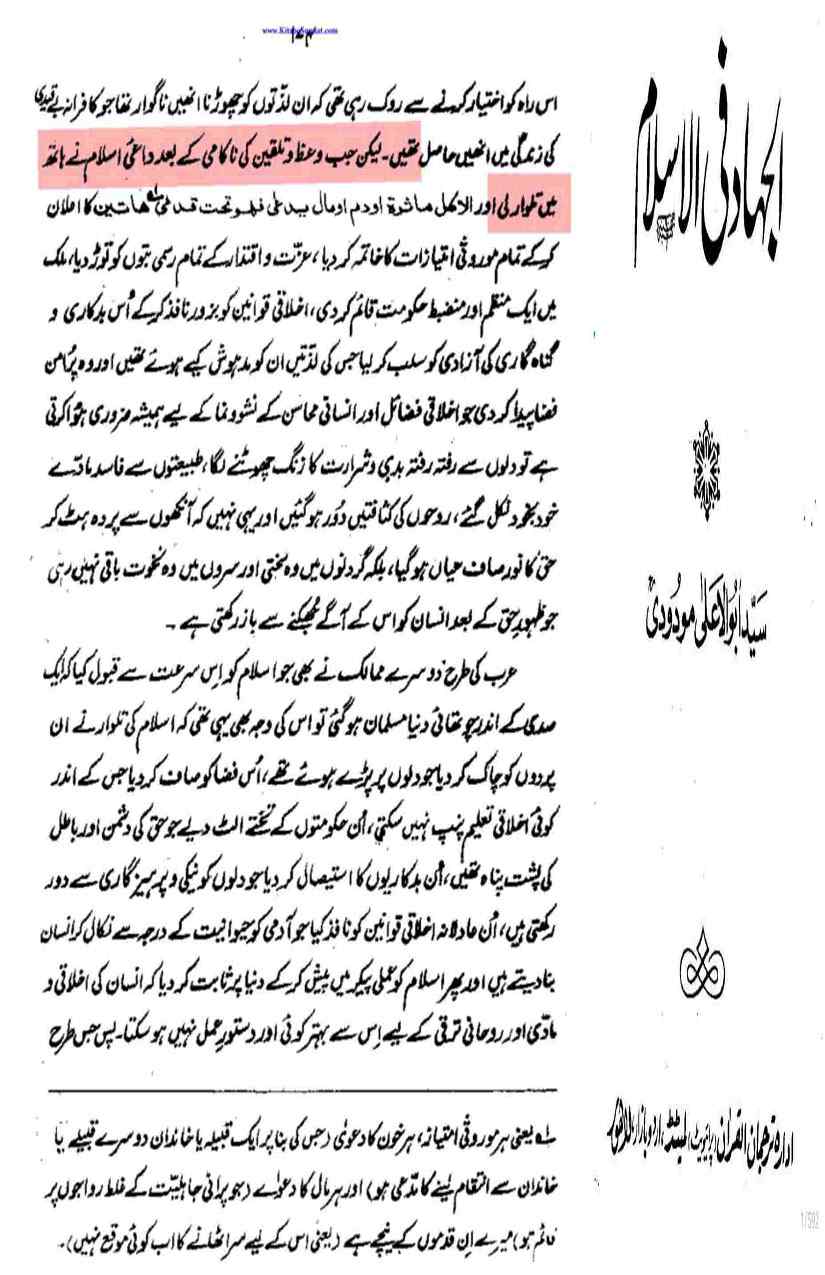 www.KitaboSunnat.com
۱۷۴
اس راہ کو اختیار کرنے سے روک رہی تھی کہ ان لذّتوں کو چھوڑنا انھیں ناگوار تھا جو کافرانہ بے قیدی
کی زندگی میں انھیں حاصل تھیں۔ لیکن جب وعظ و تلقین کی ناکامی کے بعد داعیٔ اسلام نے ہاتھ
میں تلوار لی اور الا کل ماثرة او دم او مال یدعی فھو تحت قدمی ھاتین کا اعلان
کر کے تمام موروثی امتیازات کا خاتمہ کر دیا، عزّت و اقتدار کے تمام رسمی بتوں کو توڑ دیا، ملک
میں ایک منظم اور منضبط حکومت قائم کر دی، اخلاقی قوانین کو بزور نافذ کر کے اُس بدکاری و
گناہ گاری کی آزادی کو سلب کر لیا جس کی لذّتیں ان کو مدہوش کیے ہوئے تھیں اور وہ پُرامن
فضا پیدا کر دی جو اخلاقی فضائل اور انسانی محاسن کے نشوونما کے لیے ہمیشہ ضروری ہوا کرتی
ہے تو دلوں سے رفتہ رفتہ بدی و شرارت کا زنگ چھوٹنے لگا، طبیعتوں سے فاسد مادّے
خود بخود نکل گئے، روحوں کی کثافتیں دُور ہو گئیں اور یہی نہیں کہ آنکھوں سے پردہ ہٹ کر
حق کا نور صاف عیاں ہو گیا، بلکہ گردنوں میں وہ سختی اور سروں میں وہ نخوت باقی نہیں رہی
جو ظہورِ حق کے بعد انسان کو اس کے آگے جُھکنے سے باز رکھتی ہے۔
عرب کی طرح دوسرے ممالک نے بھی جو اسلام کو اِس سرعت سے قبول کیا کہ ایک
صدی کے اندر چوتھائی دنیا مسلمان ہو گئی تو اس کی وجہ بھی یہی تھی کہ اسلام کی تلوار نے ان
پردوں کو چاک کر دیا جو دلوں پر پڑے ہوئے تھے، اُس فضا کو صاف کر دیا جس کے اندر
کوئی اخلاقی تعلیم پنپ نہیں سکتی، اُن حکومتوں کے تختے الٹ دیے جو حق کی دشمن اور باطل
کی پشت پناہ تھیں، اُن بدکاریوں کا استیصال کر دیا جو دلوں کو نیکی و پرہیزگاری سے دور
رکھتی ہیں، اُن عادلانہ اخلاقی قوانین کو نافذ کیا جو آدمی کو حیوانیت کے درجہ سے نکال کر انسان
بنا دیتے ہیں اور پھر اسلام کو عملی پیکر میں پیش کر کے دنیا پر ثابت کر دیا کہ انسان کی اخلاقی و
مادّی اور روحانی ترقی کے لیے اِس سے بہتر کوئی اور دستورِ عمل نہیں ہو سکتا۔ پس جس طرح
لہ یعنی ہر موروثی امتیاز، ہر خون کا دعویٰ (جس کی بنا پر ایک قبیلہ یا خاندان دوسرے قبیلے یا
خاندان سے انتقام لینے کا مدّعی ہو) اور ہر مال کا دعواے (جو پرانی جاہلیّت کے غلط رواجوں پر
قائم ہو) میرے اِن قدموں کے نیچے ہے (یعنی اس کے لیے سر اٹھانے کا اب کوئی موقع نہیں)۔
الجہاد فی الاسلام
سیّد ابوالاعلیٰ مودودیؒ
ادارہ ترجمان القرآن (پرائیویٹ) لمیٹڈ، اردو بازار، لاہور
1/592